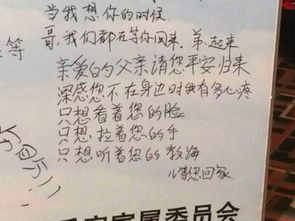 当我想你的时候
哥,我们都在等你回来,弟起来
等
亲爱的父亲,请您平安归来
深感您不在身边时我有多心疼
只想看着您的脸
只想拉着您的手
只想听着您的教诲
儿等您回家
家属委员会